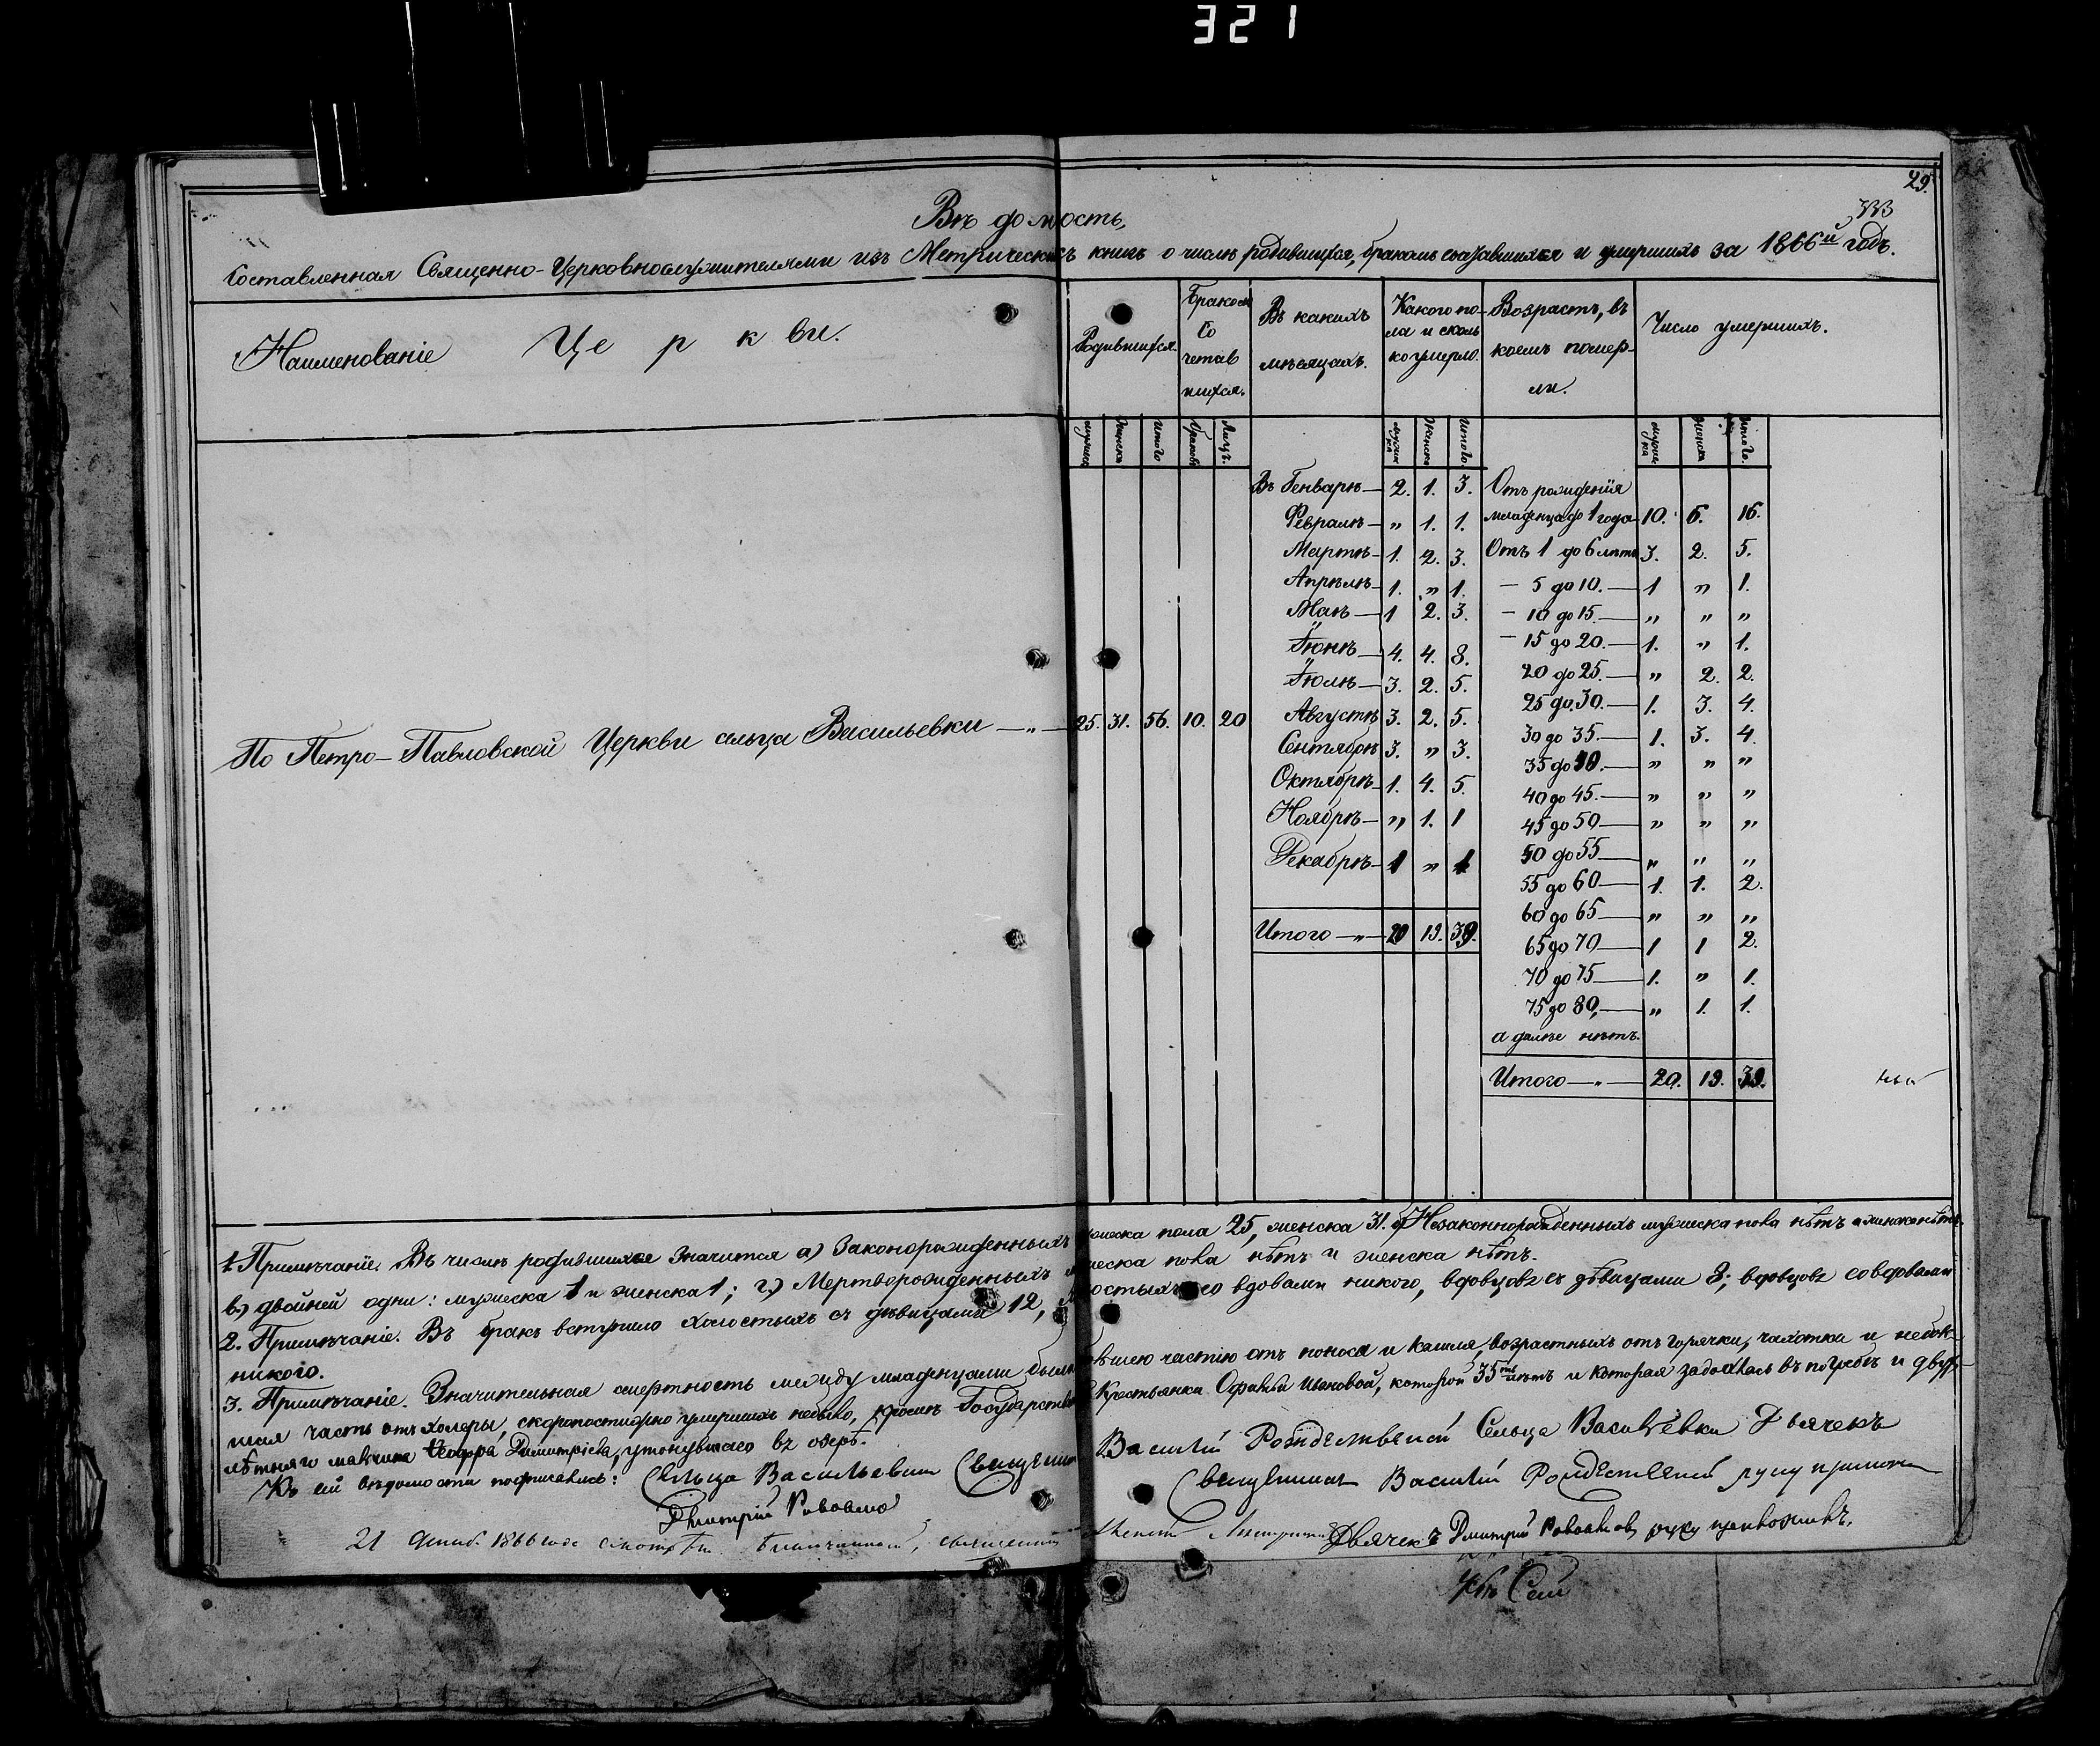 321
29.
333
Вѣдомость,
Составленная Священно-Церковнослужителями изъ Метрическихъ книгъ о числѣ родившихся, бракомъ сочетавшихся и умершихъ за 1866й годъ.
Наименованіе Церкви.
Родившихся.
Бракомъ
Со
четав
шихся.
Въ какихъ
мѣсяцахъ.
Какого по-
ла и сколь
ко умерло.
Возрастъ, въ
коемъ помер-
ли.
Число умершихъ.
мужска женска Итого Браковъ Лицъ. мужска Женска Итого. мужска Женска Итого.
По Петро-Павловской Церкви сельца Васильевки — „ — 25. 31. 56. 10. 20
Въ Генварѣ — 2. 1. 3.
Февралѣ — „ 1. 1.
Мартѣ — 1. 2. 3.
Апрѣлѣ — 1. „ 1.
Маѣ — 1 2. 3.
Іюнѣ — 4. 4. 8.
Іюлѣ — 3. 2. 5.
Августѣ 3. 2. 5.
Сентябрѣ 3. „ 3.
Октябрѣ — 1. 4. 5.
Ноябрѣ — „ 1. 1
Декабрѣ — 1 „ 1
Итого — „ — 20 19. 39.
Отъ рожденія
младенца до 1 года 10. 6. 16.
Отъ 1 до 6 лѣтъ 3. 2. 5.
— 5 до 10. — 1 „ 1.
— 10 до 15. — „ „ „
— 15 до 20. — 1. „ 1.
20 до 25. — „ 2. 2.
25 до 30. — 1. 3. 4.
30 до 35. — 1. 3. 4.
35 до 40. — „ „ „
40 до 45. — „ „ „
45 до 50 — „ „ „
50 до 55 — „ „ „
55 до 60 — 1. 1. 2.
60 до 65 — „ „ „
65 до 70 — 1 1 2.
70 до 75 — 1. „ 1.
75 до 80, — „ 1. 1.
а далѣе нѣтъ.
Итого — „ — 20. 19. 39.
1. Примѣчаніе. Въ числѣ родившихся значится а) Законорожденныхъ мужеска пола 25, женска 31. б) Незаконнорожденныхъ мужеска пола нѣтъ а женска нѣтъ.
в) двойней одни: мужеска 1 и женска 1; г) Мертворожденныхъ мужеска пола нѣтъ и женска нѣтъ.
2. Примѣчаніе. Въ бракъ вступило холостыхъ съ дѣвицами 12, холостыхъ со вдовами никого, вдовцовъ съ дѣвицами 8; вдовцовъ со вдовами
никого.
3. Примѣчаніе. Значительная смертность между младенцами была большею частію отъ поноса и кашля, возрастныхъ отъ горячки, чахотки и небол-
шая часть отъ холеры, скоропостижно умершихъ небыло, кромѣ Государств Крестьянки Ивановой, которой 35 лѣтъ и которая задохлась въ погребѣ и двух-
лѣтняго мальчика Димитріева, утонувшаго въ озерѣ.
Къ сей вѣдомости подписались: Сельца Васильевки Священникъ Василій Рождественскій Сельца Васильевки Дьячекъ
Дмитрій
Священникъ Василій Рождественскій руку приложи
21 1866 года Благочинный, священникъ
Дьячекъ Дмитрій руку приложилъ.